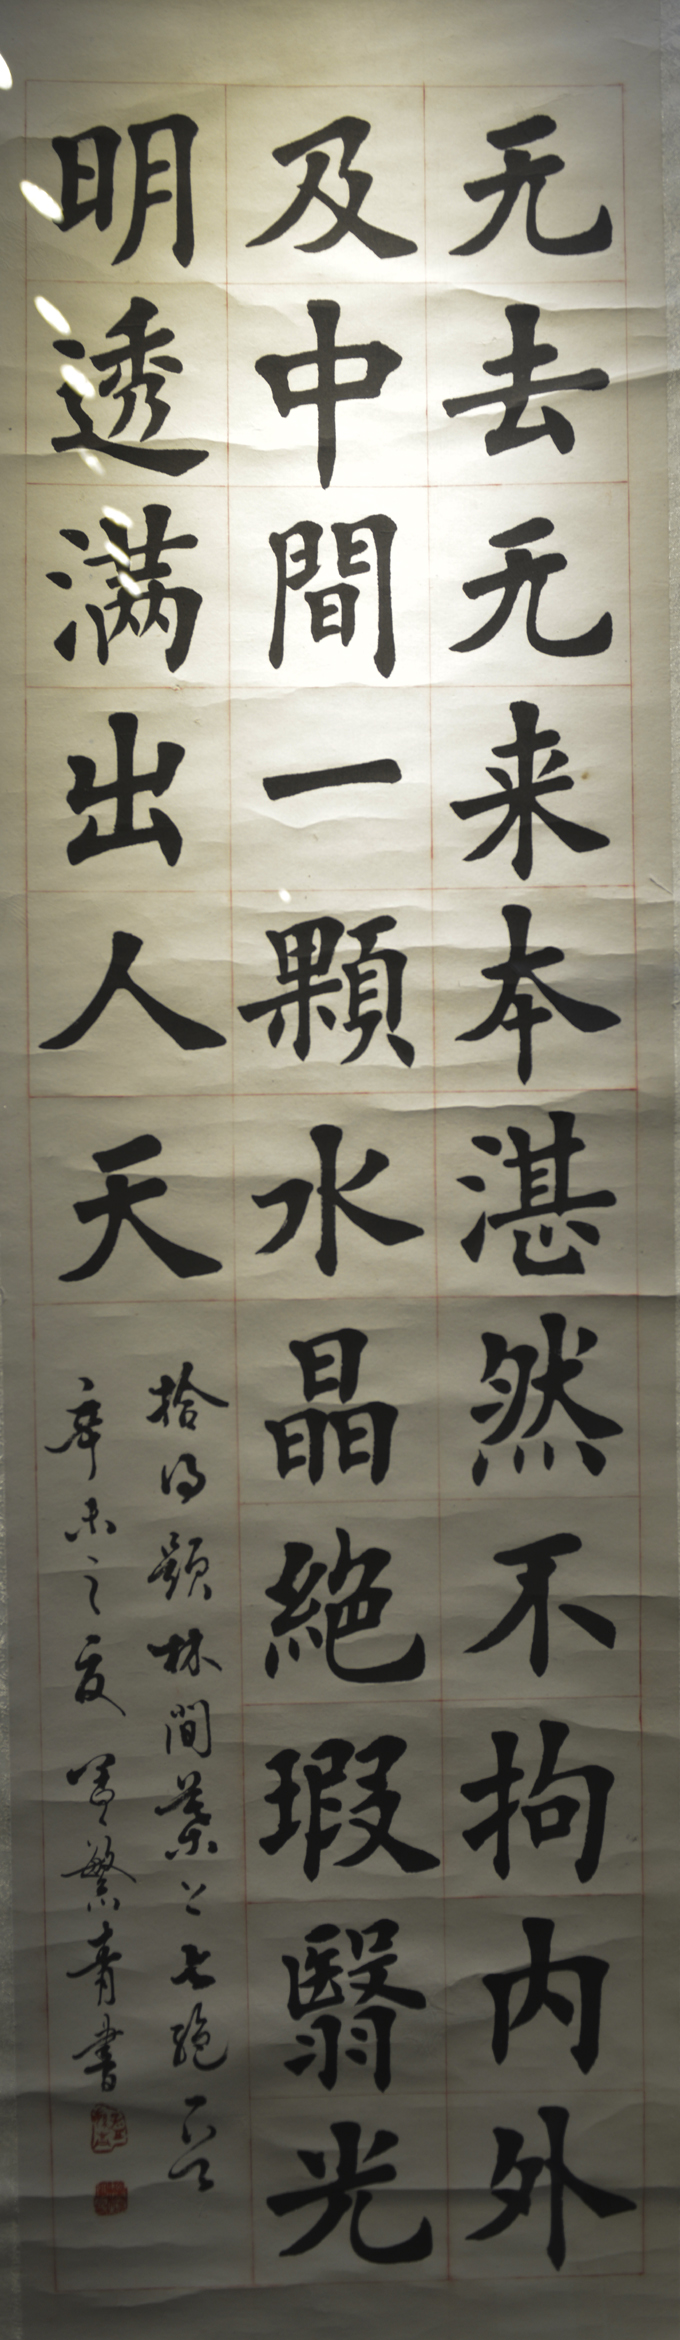 无去无来本湛然不拘内外
及中間一顆水晶絕瑕翳光
明透满出人天
拾得題林間葉上七絕一首
辛未之夏 繁青書